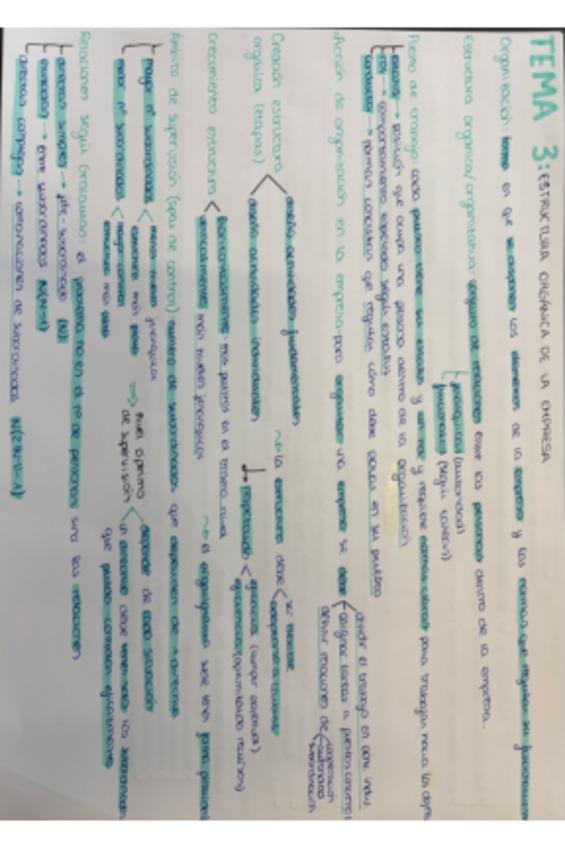 TEMA 3: ESTRUCTURA ORGÁNICA DE LA EMPRESA
Organización: forma en que se disponen los elementos de la empresa y las normas que regulan su
Estructura orgánica/organizativa: conjunto de relaciones entre las personas dentro de la empresa.
jerárquicas (autoridad)
funcionales (según tareas)
Puesto de trabajo: cada puesto tiene su estatus y un rol y requiere normas claras para trabajar hacia los
estatus → posición que ocupa una persona dentro de la organización
rol → comportamiento esperado según estatus
conducta → normas concretas que regulan cómo debe actuar en su puesto
Acción de organización en la empresa: para organizar una empresa se debe
dividir el trabajo en
asignar tareas a puestos concretos
definir relaciones de
cooperación
autoridad
subordinación
Creación estructura orgánica (etapas)
diseño actividades fundamentales
diseño actividades individuales
~> la estructura debe
ser flexible
adaptarse a
eficacia (cumplir objetivos)
eficiencia (optimizando recursos)
Crecimiento estructura
horizontalmente más puestos en el mismo nivel
verticalmente más niveles jerárquicos
~> el organigrama suele tener forma
Ámbito de supervisión (span de control) número de subordinados que dependen de 1 directivo
mayor nº subordinados
menos niveles jerárquicos
estructura más plana
menor nº subordinados
mayor control
estructura más
=> nivel óptimo de supervisión
depende de cada situación
un directivo debe tener solo los subordinados que pueda controlar eficazmente
Relaciones según Graicunas: el problema no es el nº de personas sino las relaciones
directas simples → jefe-subordinado (N)
cruzadas → entre subordinados N(N-1)
directas complejas → combinaciones de subordinados